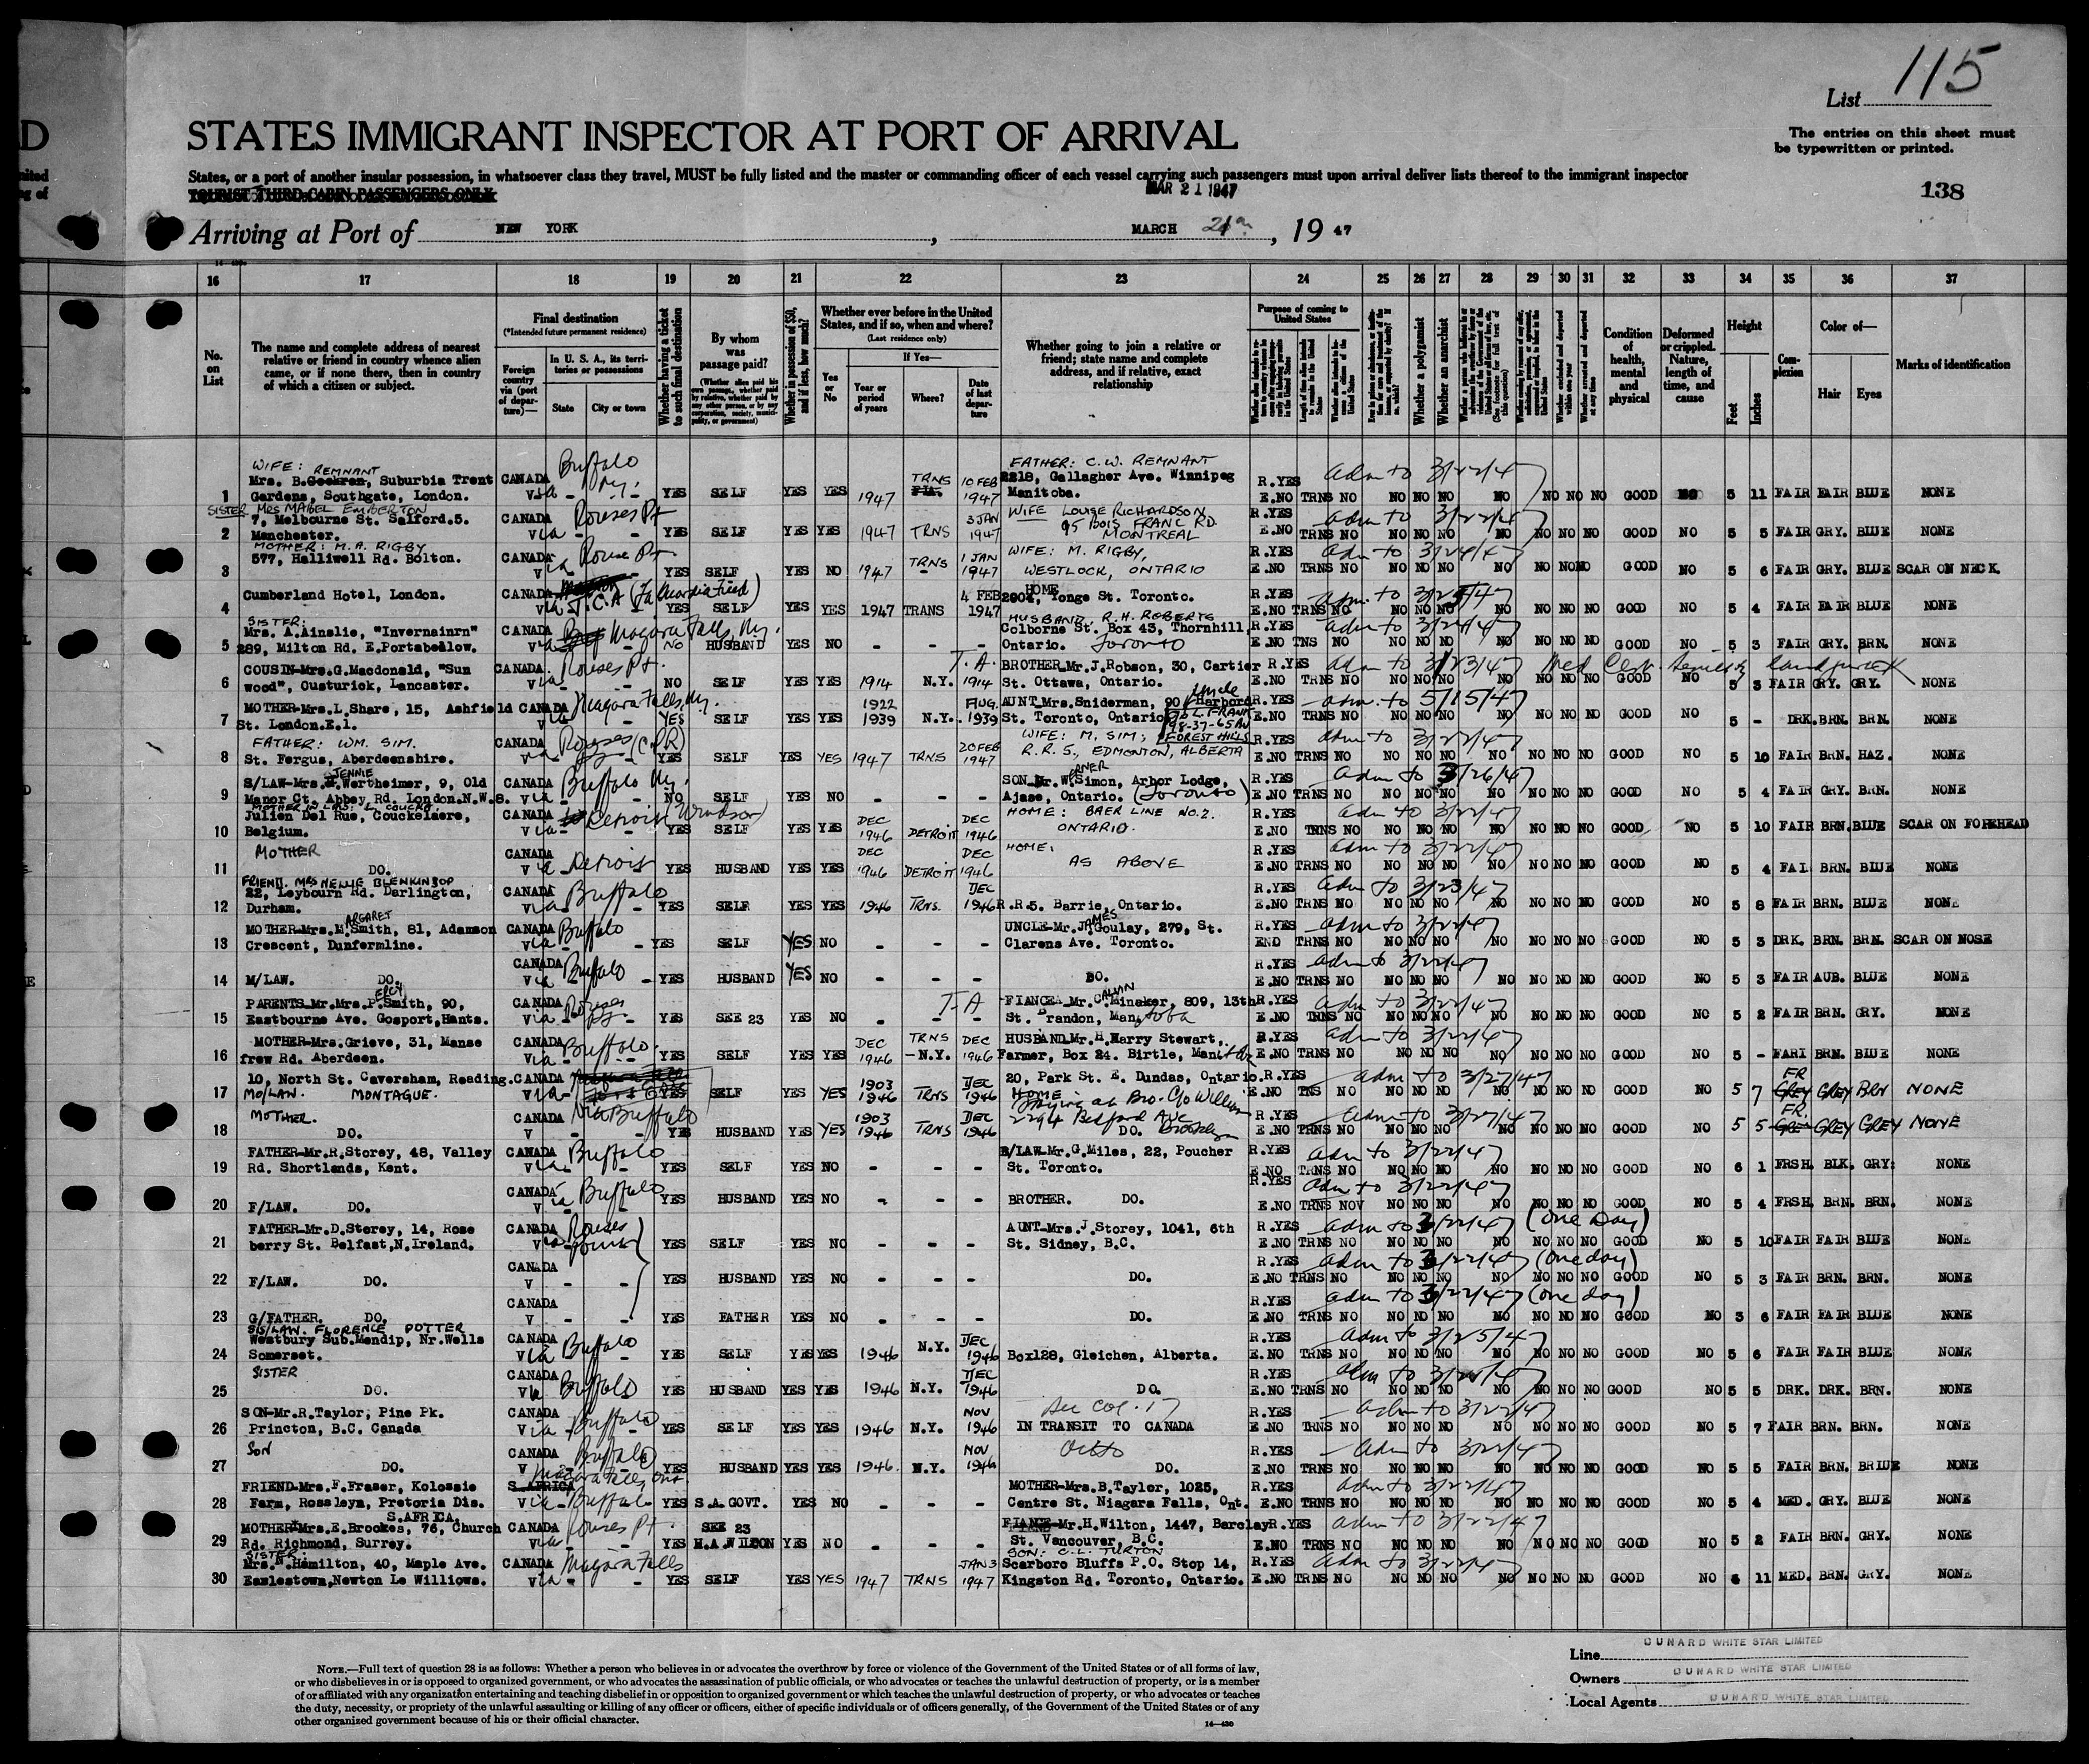 115
List
D
STATES IMMIGRANT INSPECTOR AT PORT OF ARRIVAL
The entries on this sheet must
be typewritten or printed.
States, or a port of another insular possession, in whatsoever class they travel, MUST be fully listed and the master or commanding officer of each vessel carrying such passengers must upon arrival deliver lists thereof to the immigrant inspector
TOURIST THIRD CABIN PASSENGERS ONLY
MAR 21 1947
138
Arriving at Port of NEW YORK , MARCH 21 , 19 47
16 17 18 19 20 21 22 23 24 25 26 27 28 29 30 31 32 33 34 35 36 37
No. on List
The name and complete address of nearest relative or friend in country whence alien came, or if none there, then in country of which a citizen or subject.
Final destination
(*Intended future permanent residence)
Foreign country via (port of departure)—
In U. S. A., its territories or possessions
State City or town
Whether having a ticket to such final destination
By whom was passage paid?
Whether in possession of $50, and if less, how much?
Whether ever before in the United States, and if so, when and where?
(Last residence only)
Yes or No
If Yes—
Year or period of years
Where?
Date of last departure
Whether going to join a relative or friend; state name and complete address, and if relative, exact relationship
Purpose of coming to United States
Whether a polygamist
Whether an anarchist
Condition of health, mental and physical
Deformed or crippled. Nature, length of time, and cause
Height
Feet Inches
Complexion
Color of—
Hair Eyes
Marks of identification
WIFE: REMNANT Buffalo FATHER: C.W. REMNANT
Mrs. B. Suburbia Trent CANADA N.Y. TRNS 10 FEB 2218, Gallagher Ave. Winnipeg R.YES adm to 3/22/47
1 Gardens, Southgate, London. Via - - YES SELF YES YES 1947 1947 Manitoba. E.NO TRNS NO NO NO NO NO NO NO NO GOOD NO 5 11 FAIR FAIR BLUE NONE
SISTER MRS MABEL EMBERTON Rouses Pt 3 JAN WIFE LOUISE RICHARDSON
7, Melbourne St. Salford.5. CANADA 95 BOIS FRANC RD. R.YES adm to 3/22/47
2 Manchester. Via - - YES SELF YES YES 1947 TRNS 1947 MONTREAL E.NO TRNS NO NO NO NO NO NO NO NO GOOD NO 5 5 FAIR GRY. BLUE NONE
MOTHER: M.A. RIGBY Rouse Pt
577, Halliwell Rd. Bolton. CANADA 1 JAN WIFE: M. RIGBY, R.YES adm to 3/24/47
3 Via YES SELF YES NO 1947 TRNS - 1947 WESTLOCK, ONTARIO E.NO TRNS NO NO NO NO NO NO NO NO GOOD NO 5 6 FAIR GRY. BLUE SCAR ON NECK.
Cumberland Hotel, London. CANADA 4 FEB HOME 2904, Yonge St. Toronto. R.YES adm. to 3/25/47
4 Via T.C.A YES SELF YES YES 1947 TRANS 1947 E.NO TRNS NO NO NO NO NO NO NO NO GOOD NO 5 4 FAIR FAIR BLUE NONE
SISTER: HUSBAND, R.H. ROBERTS
Mrs. A.Ainslie, "Invernainrn" CANADA Niagara Falls, N.Y. Colborne St. Box 43, Thornhill, R.YES adm to 3/24/47
5 289, Milton Rd. E.Portabellow. NO HUSBAND YES NO - - - Ontario. Toronto E.NO TNS NO NO NO NO NO NO NO NO GOOD NO 5 3 FAIR GRY. BRN. NONE
COUSIN-Mrs.G.Macdonald, "Sun CANADA. Rouses Pt. T.A. BROTHER-Mr.J.Robson, 30, Cartier R.YES adm to 3/23/47 Med Cert.
6 wood", Custurick, Lancaster. V - NO SELF YES YES 1914 N.Y. 1914 St. Ottawa, Ontario. E.NO TRNS NO NO NO NO NO NO NO NO GOOD NO 5 3 FAIR GRY. GRY. NONE
MOTHER-Mrs.L.Share, 15, Ashfield CANADA Niagara Falls, N.Y. 1922 AUG. AUNT-Mrs.Sniderman, 90 Harbord Uncle R.YES adm. to 5/15/47
7 St. London.E.1. V YES SELF YES YES 1939 N.Y. 1939 St. Toronto, Ontario L. FRANK E.NO TRNS NO NO NO NO NO NO NO NO GOOD NO 5 - DRK.BRN. BRN. NONE
FATHER: WM. SIM. CANADA Rouses (C.P.R) WIFE: M. SIM; FOREST HILLS R.YES adm to 3/22/47
8 St. Fergus, Aberdeenshire. V YES SELF YES YES 1947 TRNS 20 FEB 1947 R.R. 5., EDMONTON, ALBERTA E.NO TRNS NO NO NO NO NO NO NO NO GOOD NO 5 10 FAIR BRN. HAZ. NONE
S/LAW-Mrs. JENNIE Wertheimer, 9, Old CANADA Buffalo N.Y. SON Mr. WERNER Simon, Arbor Lodge, R.YES adm to 3/26/47
9 Manor Ct. Abbey Rd. London.N.W.8. Via - NO SELF YES NO - - - Ajase, Ontario. (Toronto) E.NO TRNS NO NO NO NO NO NO NO NO GOOD NO 5 4 FAIR GRY. BRN. NONE
Julien Del Rue, Couckelaere, CANADA Detroit Windsor DEC DEC HOME: BAER LINE NO.2. R.YES adm to 3/22/47
10 Belgium. Via- YES SELF YES YES 1946 DETROIT 1946 ONTARIO. E.NO TRNS NO NO NO NO NO NO NO NO GOOD NO 5 10 FAIR BRN.BLUE SCAR ON FOREHEAD
MOTHER CANADA Detroit DEC DEC HOME: R.YES adm to 3/22/47
11 DO. YES HUSBAND YES YES 1946 DETROIT 1946 AS ABOVE E.NO TRNS NO NO NO NO NO NO NO NO GOOD NO 5 4 FAI BRN. BLUE NONE
FRIEND. MRS NELLIE BLENKINSOP
22, Leybourn Rd. Darlington, CANADA Buffalo DEC R.YES adm to 3/23/47
12 Durham. Via YES SELF YES YES 1946 TRNS. 1946 R.R.5. Barrie, Ontario. E.NO TRNS NO NO NO NO NO NO NO NO GOOD NO 5 8 FAIR BRN. BLUE NONE
MOTHER-Mrs.MARGARET Smith, 81, Adamson CANADA Buffalo UNCLE-Mr.JAMES Goulay, 279, St. R.YES adm to 3/22/47
13 Crescent, Dunfermline. Via - YES SELF YES NO - - - Clarens Ave. Toronto. END TRNS NO NO NO NO NO NO NO NO GOOD NO 5 3 DRK. BRN. BRN. SCAR ON NOSE
CANADA Buffalo R.YES adm to 3/22/47
14 M/LAW. DO. Via - YES HUSBAND YES NO - - - DO. E.NO TRNS NO NO NO NO NO NO NO NO GOOD NO 5 3 FAIR AUB. BLUE NONE
PARENTS-Mr.Mrs.PERCY Smith, 90, CANADA Rouses T-A FIANCEA-Mr.CALVIN Minaker, 809, 13th R.YES adm to 3/22/47
15 Eastbourne Ave. Gosport,Hants. Via YES SEE 23 YES NO - - - St. Brandon, Manitoba E.NO TRNS NO NO NO NO NO NO NO NO GOOD NO 5 2 FAIR BRN. GRY. NONE
MOTHER-Mrs.Grieve, 31, Manse CANADA Buffalo. DEC TRNS DEC HUSBAND-Mr.H.Harry Stewart, R.YES adm to 3/22/47
16 frew Rd. Aberdeen. Via YES SELF YES YES 1946 - N.Y. 1946 Farmer, Box 24. Birtle, Manitoba E.NO TRNS NO NO NO NO NO NO NO NO GOOD NO 5 - FARI BRN. BLUE NONE
10, North St. Caversham, Reading. CANADA 1903 DEC 20, Park St. E. Dundas, Ontario. R.YES adm to 3/27/47 FR
17 MO/LAW. MONTAGUE. Via SELF YES YES 1946 TRNS 1946 HOME E.NO TNS NO NO NO NO NO NO NO NO GOOD NO 5 7 GREY GREY BRN NONE
MOTHER. CANADA Via Buffalo 1903 DEC Staying at Bro. C/o Willem 2294 Bedford Ave R.YES adm to 3/27/47 FR.
18 DO. V - - YES HUSBAND YES YES 1946 TRNS 1946 DO. Brooklyn E.NO TRNS NO NO NO NO NO NO NO NO GOOD NO 5 5 GREY GREY NONE
FATHER-Mr.R.Storey, 48, Valley CANADA Buffalo B/LAW-Mr.G.Miles, 22, Poucher R.YES adm to 3/22/47
19 Rd. Shortlands, Kent. Via YES SELF YES NO - - - St. Toronto. E.NO TRNS NO NO NO NO NO NO NO NO GOOD NO 6 1 FRSH. BLK. GRY: NONE
CANADA Buffalo R.YES adm to 3/22/47
20 F/LAW. DO. Via YES HUSBAND YES NO - - - BROTHER. DO. E.NO TRNS NOV NO NO NO NO NO NO NO GOOD NO 5 4 FRSH. BRN. BRN. NONE
FATHER-Mr.D.Storey, 14, Rose CANADA Rouses AUNT-Mrs.J.Storey, 1041, 6th R.YES adm to 3/22/47 (One Day)
21 berry St. Belfast,N.Ireland. Via Point YES SELF YES NO - - - St. Sidney, B.C. E.NO TRNS NO NO NO NO NO NO NO NO GOOD NO 5 10 FAIR FAIR BLUE NONE
CANADA R.YES adm to 3/22/47 (One day)
22 F/LAW. DO. V - - YES HUSBAND YES NO - - - DO. E.NO TRNS NO NO NO NO NO NO NO NO GOOD NO 5 3 FAIR BRN. BRN. NONE
CANADA R.YES adm to 3/22/47 (One day)
23 G/FATHER. DO. V - - YES FATHER YES NO - - - DO. E.NO TRNS NO NO NO NO NO NO NO NO GOOD NO 3 6 FAIR FAIR BLUE NONE
SIS/LAW. FLORENCE POTTER
Westbury Sub.Mendip, Nr.Wells CANADA Buffalo N.Y. DEC R.YES adm to 3/25/47
24 Somerset. Via YES SELF YES YES 1946 1946 Box128, Gleichen, Alberta. E.NO TRNS NO NO NO NO NO NO NO NO GOOD NO 5 6 FAIR FAIR BLUE NONE
SISTER CANADA Buffalo DEC R.YES
25 DO. Via YES HUSBAND YES YES 1946 N.Y. 1946 DO. E.NO TRNS NO NO NO NO NO NO NO NO GOOD NO 5 5 DRK. DRK. BRN. NONE
SON-Mr.R.Taylor, Pine Pk. CANADA Buffalo NOV See Col. 17 R.YES adm to 3/22/47
26 Princton, B.C. Canada Via YES SELF YES YES 1946 N.Y. 1946 IN TRANSIT TO CANADA E.NO TRNS NO NO NO NO NO NO NO NO GOOD NO 5 7 FAIR BRN. BRN. NONE
SON CANADA Buffalo NOV Ditto R.YES adm to 3/22/47
27 DO. V YES HUSBAND YES YES 1946. N.Y. 1946 DO. E.NO TRNS NO NO NO NO NO NO NO NO GOOD NO 5 5 FAIR BRN. BRIUE NONE
FRIEND-Mrs.F.Fraser, Kolossie S.AFRICA Niagara Falls, Ont. MOTHER-Mrs.B.Taylor, 1025, R.YES adm to 3/22/47
28 Farm, Rossleyn, Pretoria Dis. Via Buffalo YES S.A.GOVT. YES NO - - - Centre St. Niagara Falls, Ont. E.NO TRNS NO NO NO NO NO NO NO NO GOOD NO 5 4 MED. GRY. BLUE NONE
S.AFRICA.
MOTHER-Mrs.E.Brookes, 76, Church CANADA Rouses Pt. SEE 23 Mr.H.Wilton, 1447, Barclay R.YES adm to 3/22/47
29 Rd. Richmond, Surrey. Via YES H.A.WILTON YES NO - - - St. Vancouver, B.C. E.NO TRNS NO NO NO NO NO NO NO NO GOOD NO 5 2 FAIR BRN. GRY. NONE
SISTER. SON: C.L. TURTON
Mrs. Hamilton, 40, Maple Ave. CANADA Niagara Falls JAN 3 Scarboro Bluffs P.O. Stop 14, R.YES adm to 3/22/47
30 Earlestown,Newton Le Williows. Via YES SELF YES YES 1947 TRNS 1947 Kingston Rd. Toronto, Ontario. E.NO TRNS NO NO NO NO NO NO NO NO GOOD NO 4 11 MED. BRN. GRY. NONE
NOTE.—Full text of question 28 is as follows: Whether a person who believes in or advocates the overthrow by force or violence of the Government of the United States or of all forms of law,
or who disbelieves in or is opposed to organized government, or who advocates the assassination of public officials, or who advocates or teaches the unlawful destruction of property, or is a member
of or affiliated with any organization entertaining and teaching disbelief in or opposition to organized government or which teaches the unlawful destruction of property, or who advocates or teaches
the duty, necessity, or propriety of the unlawful assaulting or killing of any officer or officers, either of specific individuals or of officers generally, of the Government of the United States or of any
other organized government because of his or their official character.
14—430
Line CUNARD WHITE STAR LIMITED
Owners CUNARD WHITE STAR LIMITED
Local Agents CUNARD WHITE STAR LIMITED